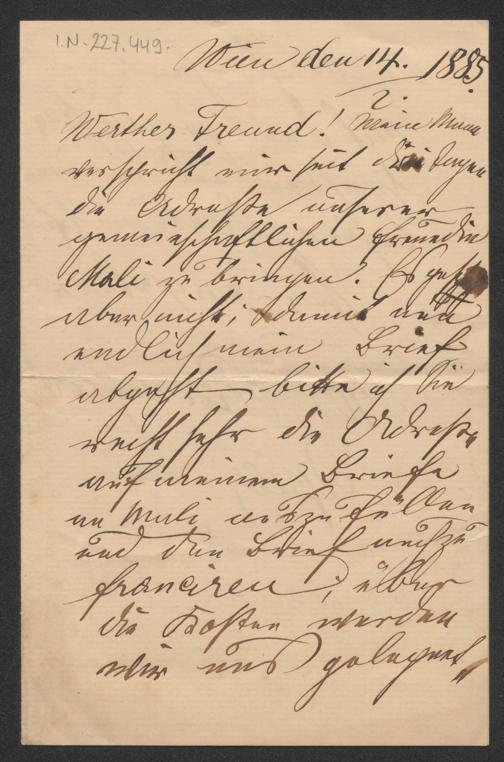 I.N. 227.449.
Wien den 14. 1885
7.
Werther Freund! Mein Mann
verspricht mir seit drei Tagen
die Adresse unserer
gemeinschaftlichen Freundin
Mali zu bringen. Es geht
aber nicht; damit nun
endlich mein Brief
abgeht bitte ich Sie
recht sehr die Adresse
auf meinem Briefe
an Mali auszufüllen
und den Brief auch zu
franciren, über
die Kosten werden
wir uns